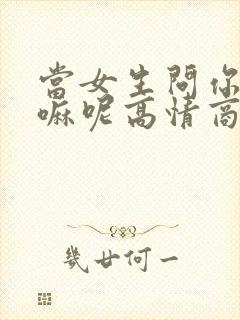 當女生問你
嘛呢高情商
幾廿何一